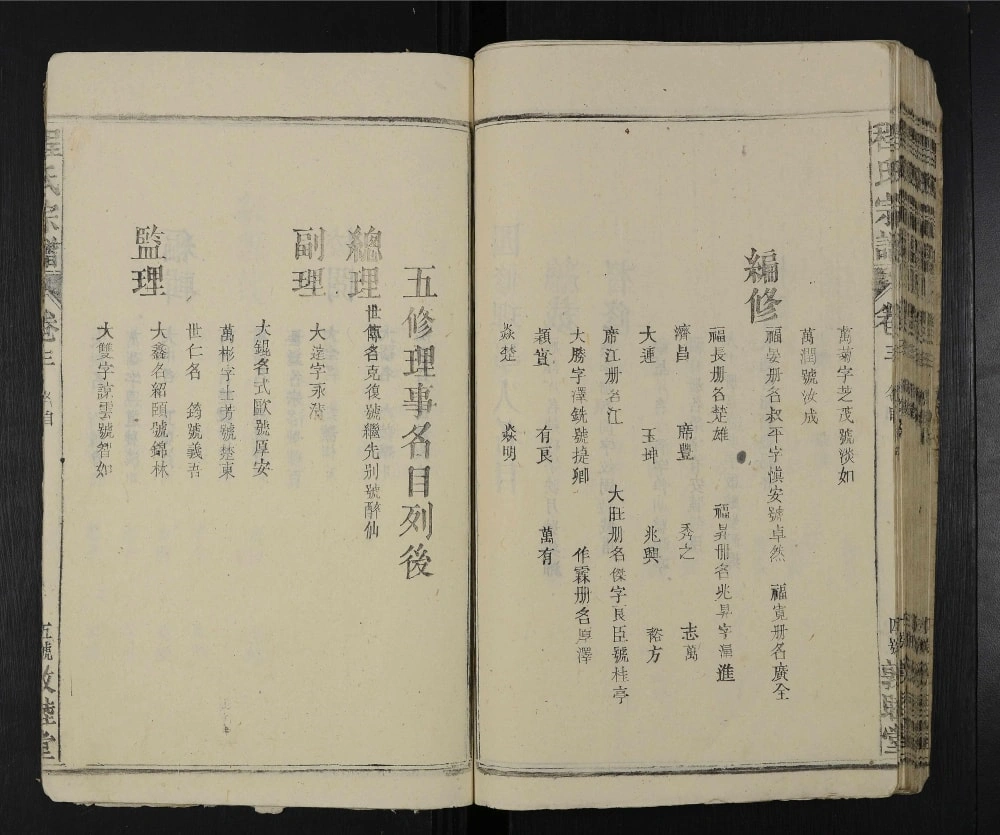 程氏宗譜
卷三
四號
敦睦堂
萬菊字芝茂號淡如
萬潤號汝成
編修
福晏册名叔平字慎安號卓然 福寬册名廣全
福長册名楚雄 福昇册名兆昇字漸進
濟昌 席豐 秀之 志萬
大運 玉坤 兆興 裕方
席江册名江 大旺册名傑字良臣號桂亭
大勝字澤銑號捷卿 作霖册名卓澤
穎賞 有良 萬有
焱楚 焱明
五修理事名目列後
總理
世傳名克復號繼先別號醉仙
副理
大遠字永
大錕名式歐號厚安
萬彬字士芳號楚東
世仁名 筠號義吾
監理
大鑫名紹頤號錦林
大雙字諒雲號智如
程氏宗譜
卷三
五號
敦睦堂